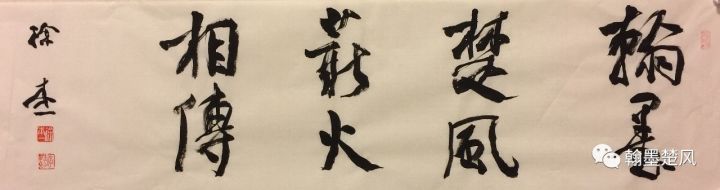 翰墨
楚風
薪火
相傳
徐杰
翰墨楚风